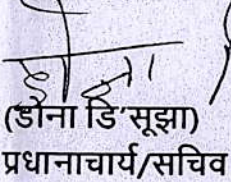 (डोना डि'सूझा)
प्रधानाचार्य/सचिव